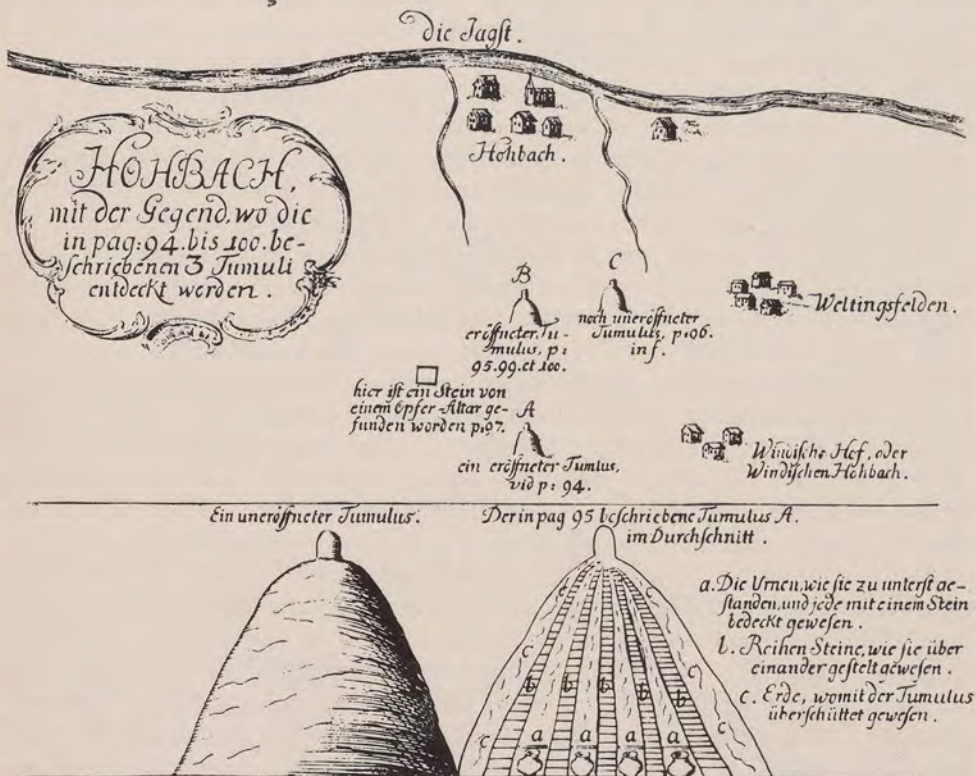 die Jagst.
Hohbach.
HOHBACH,
mit der Gegend, wo die
in pag: 94. bis 100. be-
schriebenen 3 Tumuli
entdeckt worden.
B
eröffneter Tu-
mulus, p:
95. 99. et 100.
C
noch uneröffneter
Tumulus, p. 96.
inf.
Weltingsfelden.
hier ist ein Stein von
einem Opfer-Altar ge-
funden worden p. 97.
A
ein eröffneter Tumlus,
vid p: 94.
Windische Hof, oder
Windischen Hohbach.
Ein uneröffneter Tumulus.
Der in pag 95 beschriebene Tumulus A.
im Durchschnitt.
c c
b b b b b
c c
a a a a
a. Die Urnen, wie sie zu unterst ge-
standen, und jede mit einem Stein
bedeckt gewesen.
b. Reihen Steine, wie sie über
einander gestelt gewesen.
c. Erde, womit der Tumulus
überschüttet gewesen.